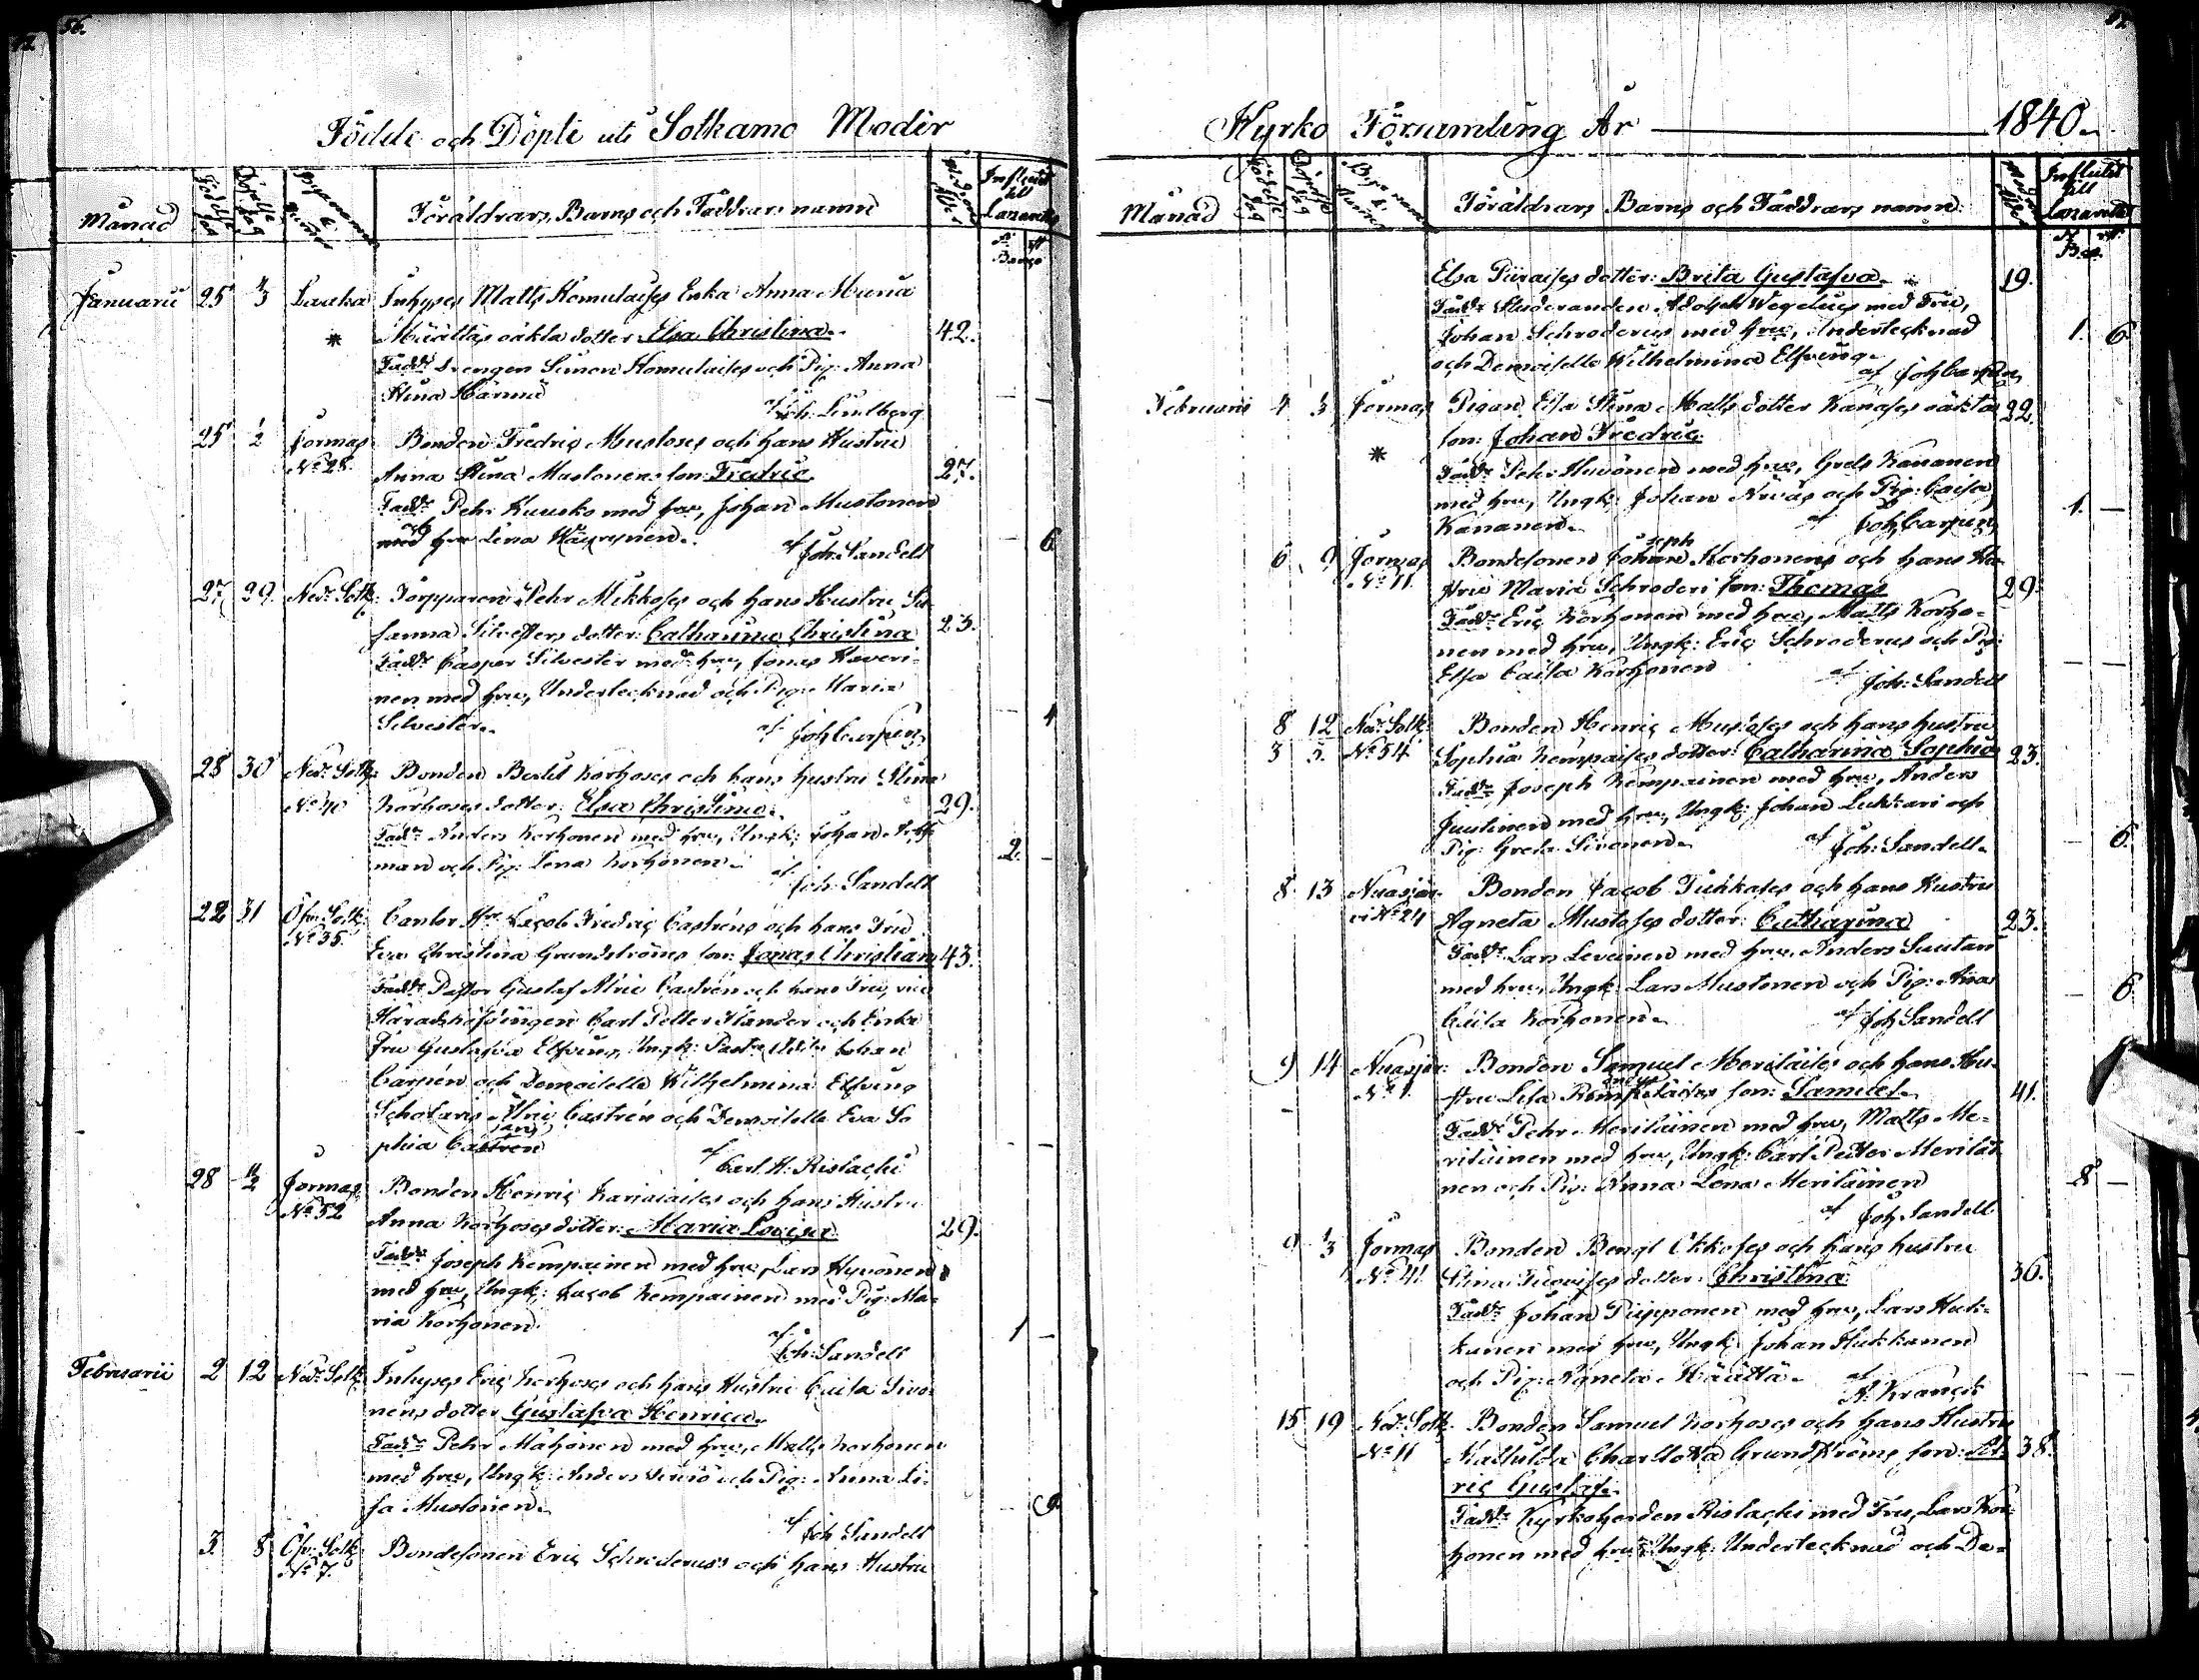 56.
Födde och Döpte uti Sotkamo Moder
Månad
Födelse dag
Döpelse dag
Föräldrars, Barns och Faddrars namn
Influtit till Lazarettet
Januarii 25 1/3 Laaka Inhyses Matts Komulaises Enka Anna Maria
* Määttäs oäkta dotter Elsa Christina. 42.
Fadd: Drengen Simon Komulaises och Pig: Anna
Stina Härmä
af Joh. Lindberg
25 1/2 Jormas Bonden Fredric Mustoses och hans Hustru
No 28. Anna Stina Mustonens son: Fredric. 27.
Fadd: Pehr Kuusko med hru, Johan Mustonen
med hru Lena
af Joh. Sandell 6
27 29. Ned: Sotk: Torpparen Pehr Mikkoses och hans Hustru Su-
sanna Silvesters dotter: Catharina Christina 23.
Fadd: Casper Silvester med hru, Jonas Kaveri-
nen med hru, Undertecknad och Pig: Maria
Silvester.
af Joh Carpén 4
28 30 Ned: Sotk: Bonden Bertil Korhoses och hans Hustru Stina
No 40 Korhoses dotter: Elsa Christina. 29.
Fadd: Anders Korhonen med hru, Ungk: Johan
man och Pig: Lena Korhonen. 2. –
af Joh: Sandell
22 31 Öfv: Sotk: Cantor Hr Jacob Fredric Castréns och hans Fru
No 35. Eva Christina Grundströms son: Jonas Christian 43.
Fadd: Pastor Gustaf Alric Castrén och hans Fru, vice
Häradshöfdingen Carl Petter Elander och Enke
Fru Gustafva Elfving, Ungk: Johan
Carpén och Demoiselle Wilhelmina Elfving
Scholaris Alric Castrén och Demoiselle Eva So
phia Castrén
af Carl H: Rislachi
28 11/2 Jormas Bonden Henric Karjalaises och hans Hustru
No 52 Anna Korhoses dotter: Maria Lovisa 29.
Fadd: Joseph Kempainen med hru, Lars Hyvönen
med hru, Ungk: Jacob Kempainen med Pig: Ma-
ria Korhonen. 1 –
af Joh: Sandell
Februarii 2 12 Ned: Sotk: Inhyses Eric Korhoses och hans Hustru Caisa Sivo-
nens dotter Gustafva Henrica.
Fadd: Pehr Mähönen med hru, Matts Korhonen
med hru, Ungk: Anders och Pig: Anna Li-
sa Mustonen. 9
af Joh Sandell
3. 8 Öfv: Sotk: Bondesonen Eric Schroderus och hans Hustru
No 7.
Kyrko Församling År 1840.
Månad
Födelse dag
Döpelse dag
Föräldrars Barns och Faddrars namn
Influtit till Lazarettet
Elsa Piiraises dotter: Brita Gustafva. 19.
Fadd: Studeranden Adolph Wegelius med Fru,
Johan Schroderus med hru, Undertecknad 1. 6.
och Demoiselle Wilhelmina Elfving.
af Joh Carpén
Februarii 4 1/3 Jormas Pigan Elsa Stina Matts dotter Kanases oäkta 22.
* son: Johan Fredric.
Fadd: Pehr Huvonen med hru, Grels Kananen
med hru, Ungk: Johan Kiväs och Pig: Caisa 1. –
Kananen.
af Joh Carpén
6 9 Jormas Bondesonen Joseph Korhonens och hans Hu-
No 11. stru Maria Schroderi son: Thomas 29.
Fadd: Eric Korhonen med hru, Matts Korho-
nen med hru, Ungk: Eric Schroderus och Pig:
Elsa Caisa Korhonen
af Joh: Sandell
8 12 Ned: Sotk: Bonden Henric Mustoses och hans hustru
3 5. No 54 Sophia Kempaises dotter: Catharina Sophia 23.
Fadd: Joseph Kempainen med hru, Anders
Juntinen med hru, Ungk: Johan Lukkari och
Pig: Greta Sivonen. 6.
af Joh: Sandell.
8 13 Nuasjär- Bonden Jacob Tikkases och hans Hustru
vi No 24 Agneta Mustoses dotter: Catharina 23.
Fadd: Lars Leveinen med hru, Anders Suutari
med hru, Ungk: Lars Mustonen och Pig: Anna 6.
Caisa Korhonen.
af Joh Sandell
9 14 Nuasjär: Bonden Samuel Meriläises och hans Hu-
No 1. stru Lisa son: Samuel. 41.
Fadd: Pehr Meriläinen med hru, Matts Me-
riläinen med hru, Ungk: Carl Petter Meriläi-
nen och Pig: Anna Lena Meriläinen 8 –
af Joh Sandell
9 1/3 Jormas Bonden Bengt Okkoses och hans hustru
No 41. Stina Tuovises dotter: Christina 36.
Fadd: Johan Piipponen med hru, Lars Huk-
kanen med hru, Ungk: Johan Hukkanen
och Pig: Agneta Määttä.
af A: Kranck
15 19 Ned: Sotk: Bonden Samuel Korhoses och hans Hustru
No 11 Mathilda Charlotta Grundströms son: Al- 38.
ric Gustaf.
Fadd: Kyrkoherden Rislachi med Fru, Lars Kor-
honen med hru, Ungk: Undertecknad och De-